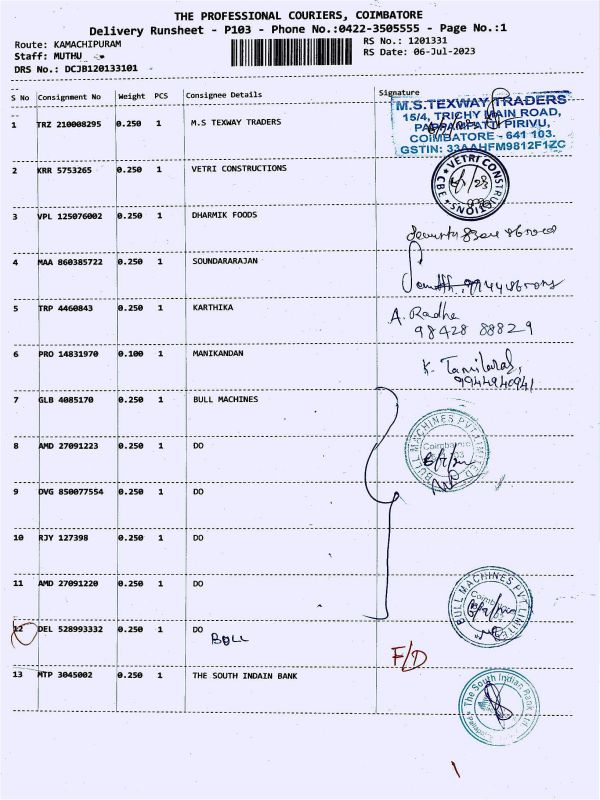 THE PROFESSIONAL COURIERS, COIMBATORE
Delivery Runsheet - P103 - Phone No.:0422-3505555 - Page No.:1
Route: KAMACHIPURAM
RS No.: 1201331
Staff: MUTHU
RS Date: 06-Jul-2023
DRS No.: DCJB120133101
S No Consignment No Weight PCS Consignee Details Signature
1 TRZ 210008295 0.250 1 M.S TEXWAY TRADERS
M.S.TEXWAY TRADERS
15/4, TRICHY MAIN ROAD,
PAPPANPATTI PIRIVU,
COIMBATORE - 641 103.
GSTIN: 33AAHFM9812F1ZC
2 KRR 5753265 0.250 1 VETRI CONSTRUCTIONS
VETRI CONSTRUCTIONS
CBE
3 VPL 125076002 0.250 1 DHARMIK FOODS
4 MAA 860385722 0.250 1 SOUNDARARAJAN
5 TRP 4460843 0.250 1 KARTHIKA
A. Radha
98428 88829
6 PRO 14831970 0.100 1 MANIKANDAN
K. Tamilarasi,
9944940941
7 GLB 4085170 0.250 1 BULL MACHINES
8 AMD 27091223 0.250 1 DO
BULL MACHINES PVT LIMITED
Coimbatore
9 DVG 850077554 0.250 1 DO
10 RJY 127398 0.250 1 DO
11 AMD 27091220 0.250 1 DO
BULL MACHINES PVT LIMITED
12 DEL 528993332 0.250 1 DO
BULL
F/D
13 MTP 3045002 0.250 1 THE SOUTH INDAIN BANK
The South Indian Bank Ltd